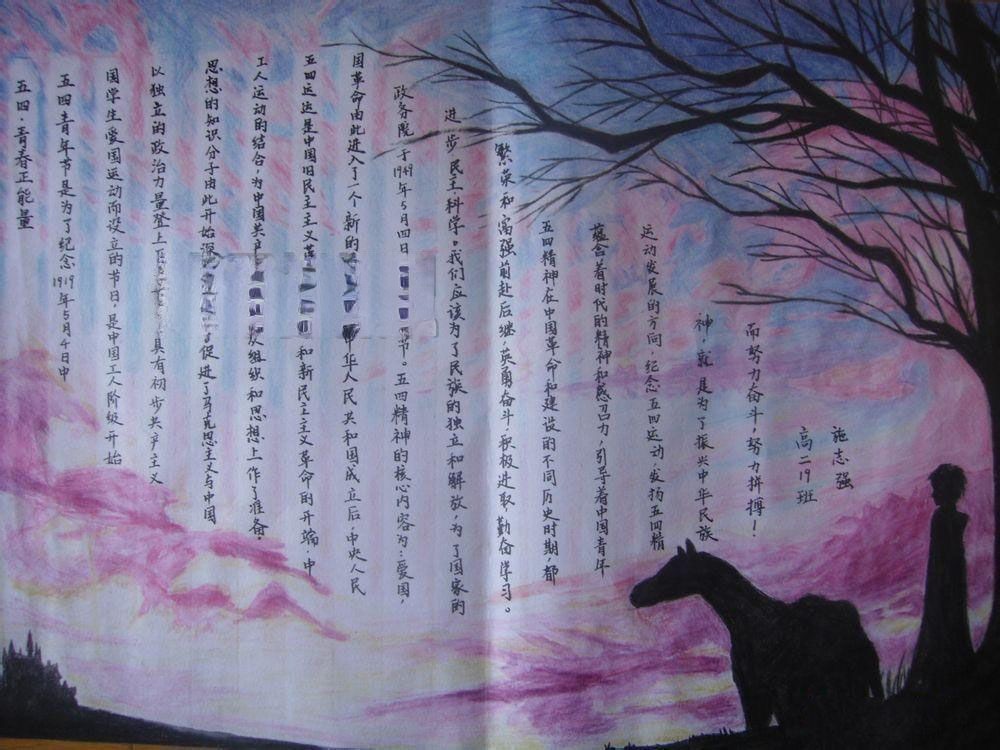 五四·青春正能量
五四青年节是为了纪念1919年5月4日中
国学生爱国运动而设立的节日，是中国工人阶级开始
以独立的政治力量登上具有初步共产主义
思想的知识分子由此开始深了促进了马克思主义与中国
工人运动的结合，为中国共产组织和思想上作了准备。
五四运运是中国旧民主主义革和新民主主义革命的开端，中
国革命由此进入了一个新的中华人民共和国成立后，中央人民
政务院于1949年5月四日节。五四精神的核心内容为：爱国，
进步，民主，科学。我们应该为了民族的独立和解放，为了国家的
繁荣和富强前赴后继，英勇奋斗，积极进取，勤奋学习。
五四精神在中国革命和建设的不同历史时期，都
蕴含着时代的精神和感召力，引导着中国青年
运动发展的方向，纪念五四运动，发扬五四精
神，就是为了振兴中华民族
而努力奋斗，努力拼搏！
高二19班
施志强